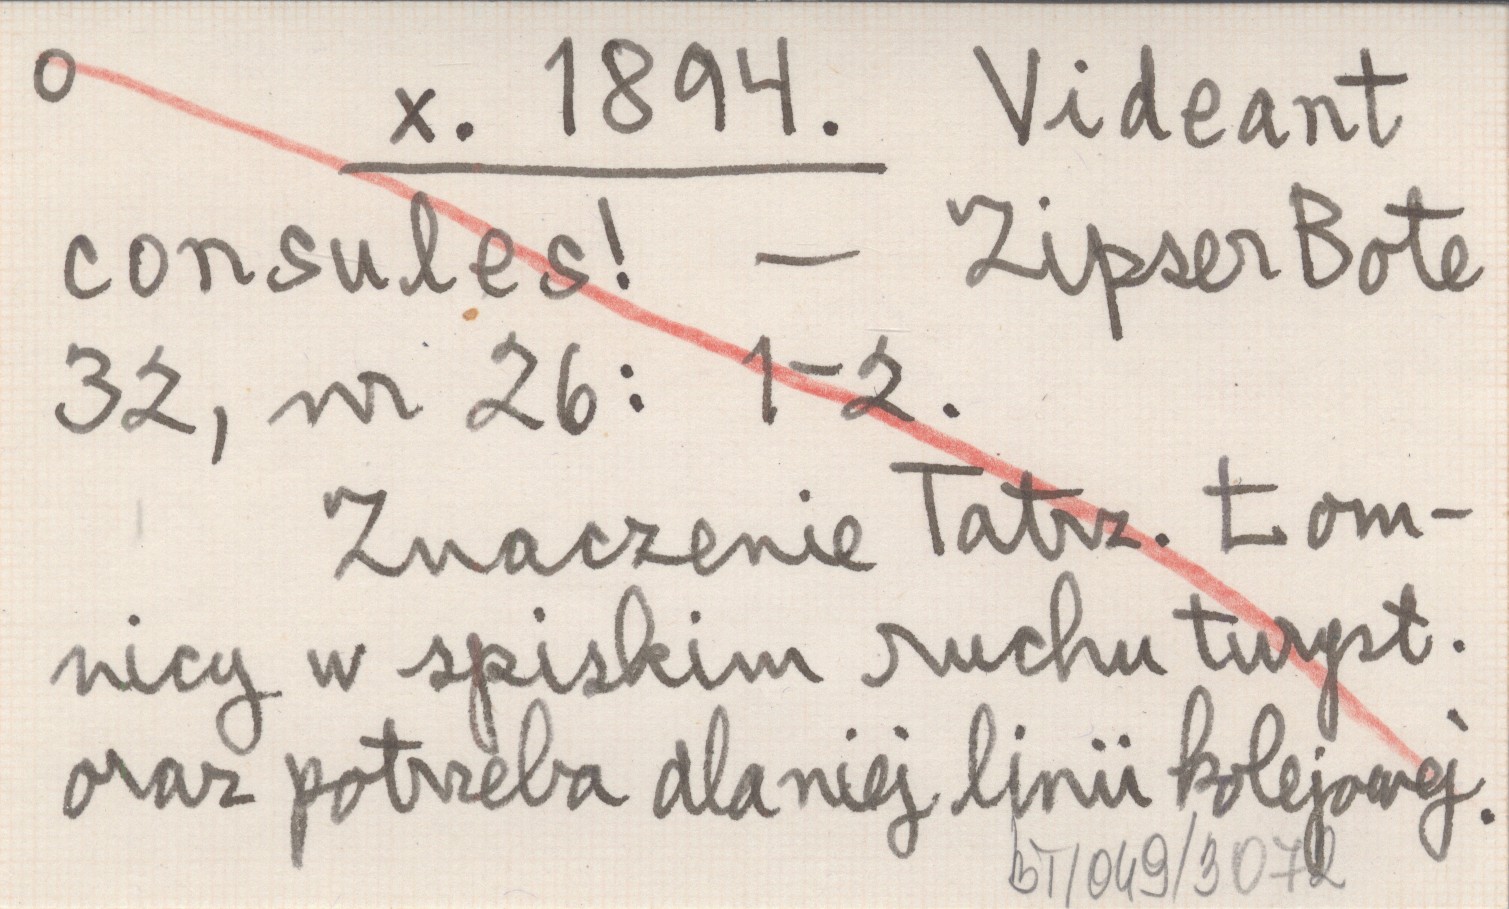 o x. 1894. Videant
consules! — Zipser Bote
32, nr 26: 1-2.
Znaczenie Tatrz. Łom-
nicy w spiskim ruchu turyst.
oraz potrzeba dla niej linii kolejowej.
BT/049/3072